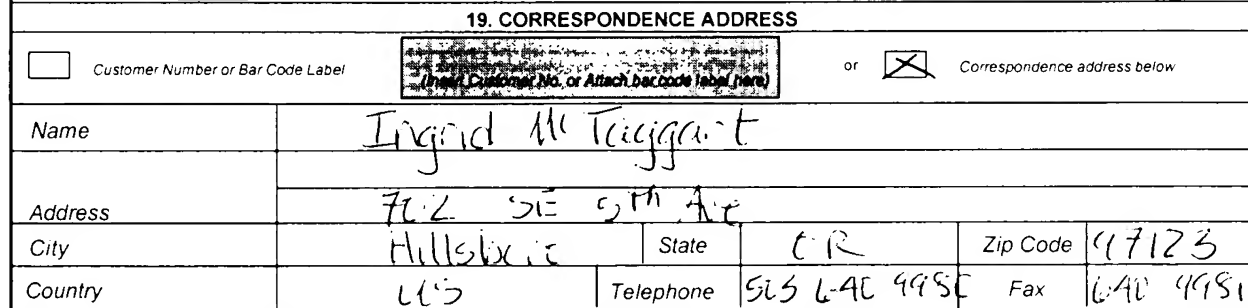 19. CORRESPONDENCE ADDRESS
Customer Number or Bar Code Label (Insert Customer No. or Attach bar code label here) or Correspondence address below
Name Ingrid McTaggart
Address 702 SE 5th Ave
City Hillsboro State OR Zip Code 97123
Country US Telephone 503 640 Fax 640